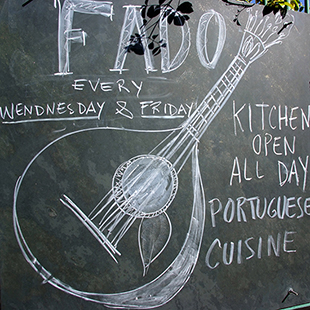 FADO
EVERY
WENDNESDAY & FRIDAY
KITCHEN
OPEN
ALL DAY
PORTUGUESE
CUISINE